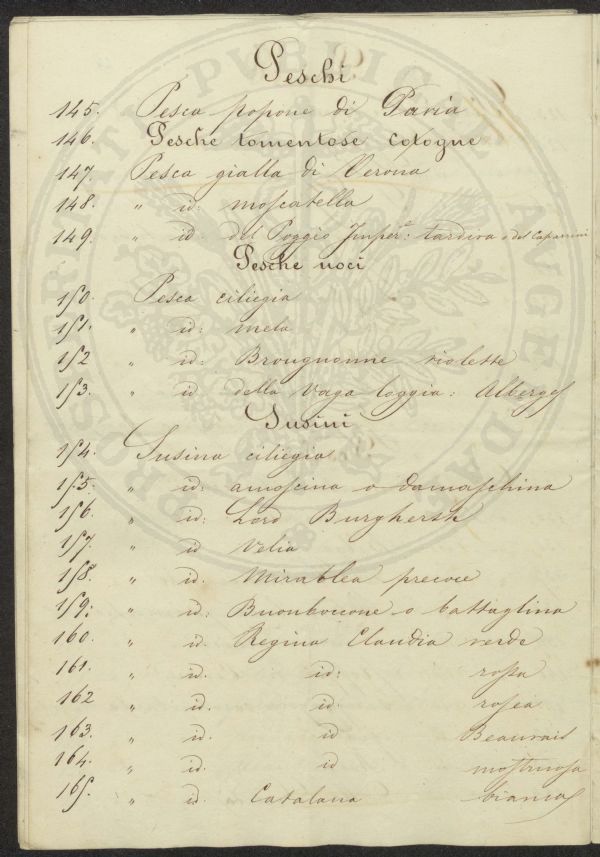 Peschi
145. Pesca popone di Pavia
146. Pesche tomentose Cotogne
147. Pesca gialla di Verona
148. " id: moscatella
149. " id del Poggio Imper.e: tardiva o del Capannini
Pesche noci
150. Pesca ciliegia
151. " id: mela
152 " id: Brougnonne violette
153. " id della Vaga loggia: Alberges
Susini
154. Susina ciliegia
155. " id: amoscina o damaschina
156. " id: Lord Burghersh
157. " id Velia
158. " id. Mirablea precoce
159. " id: Buonboccone o battaglina
160. " id. Regina Claudia verde
161. " id. id: rossa
162 " id. id. rosea
163. " id. id Beaurais
164. " id. id mostruosa
165. " id. Catalana bianca